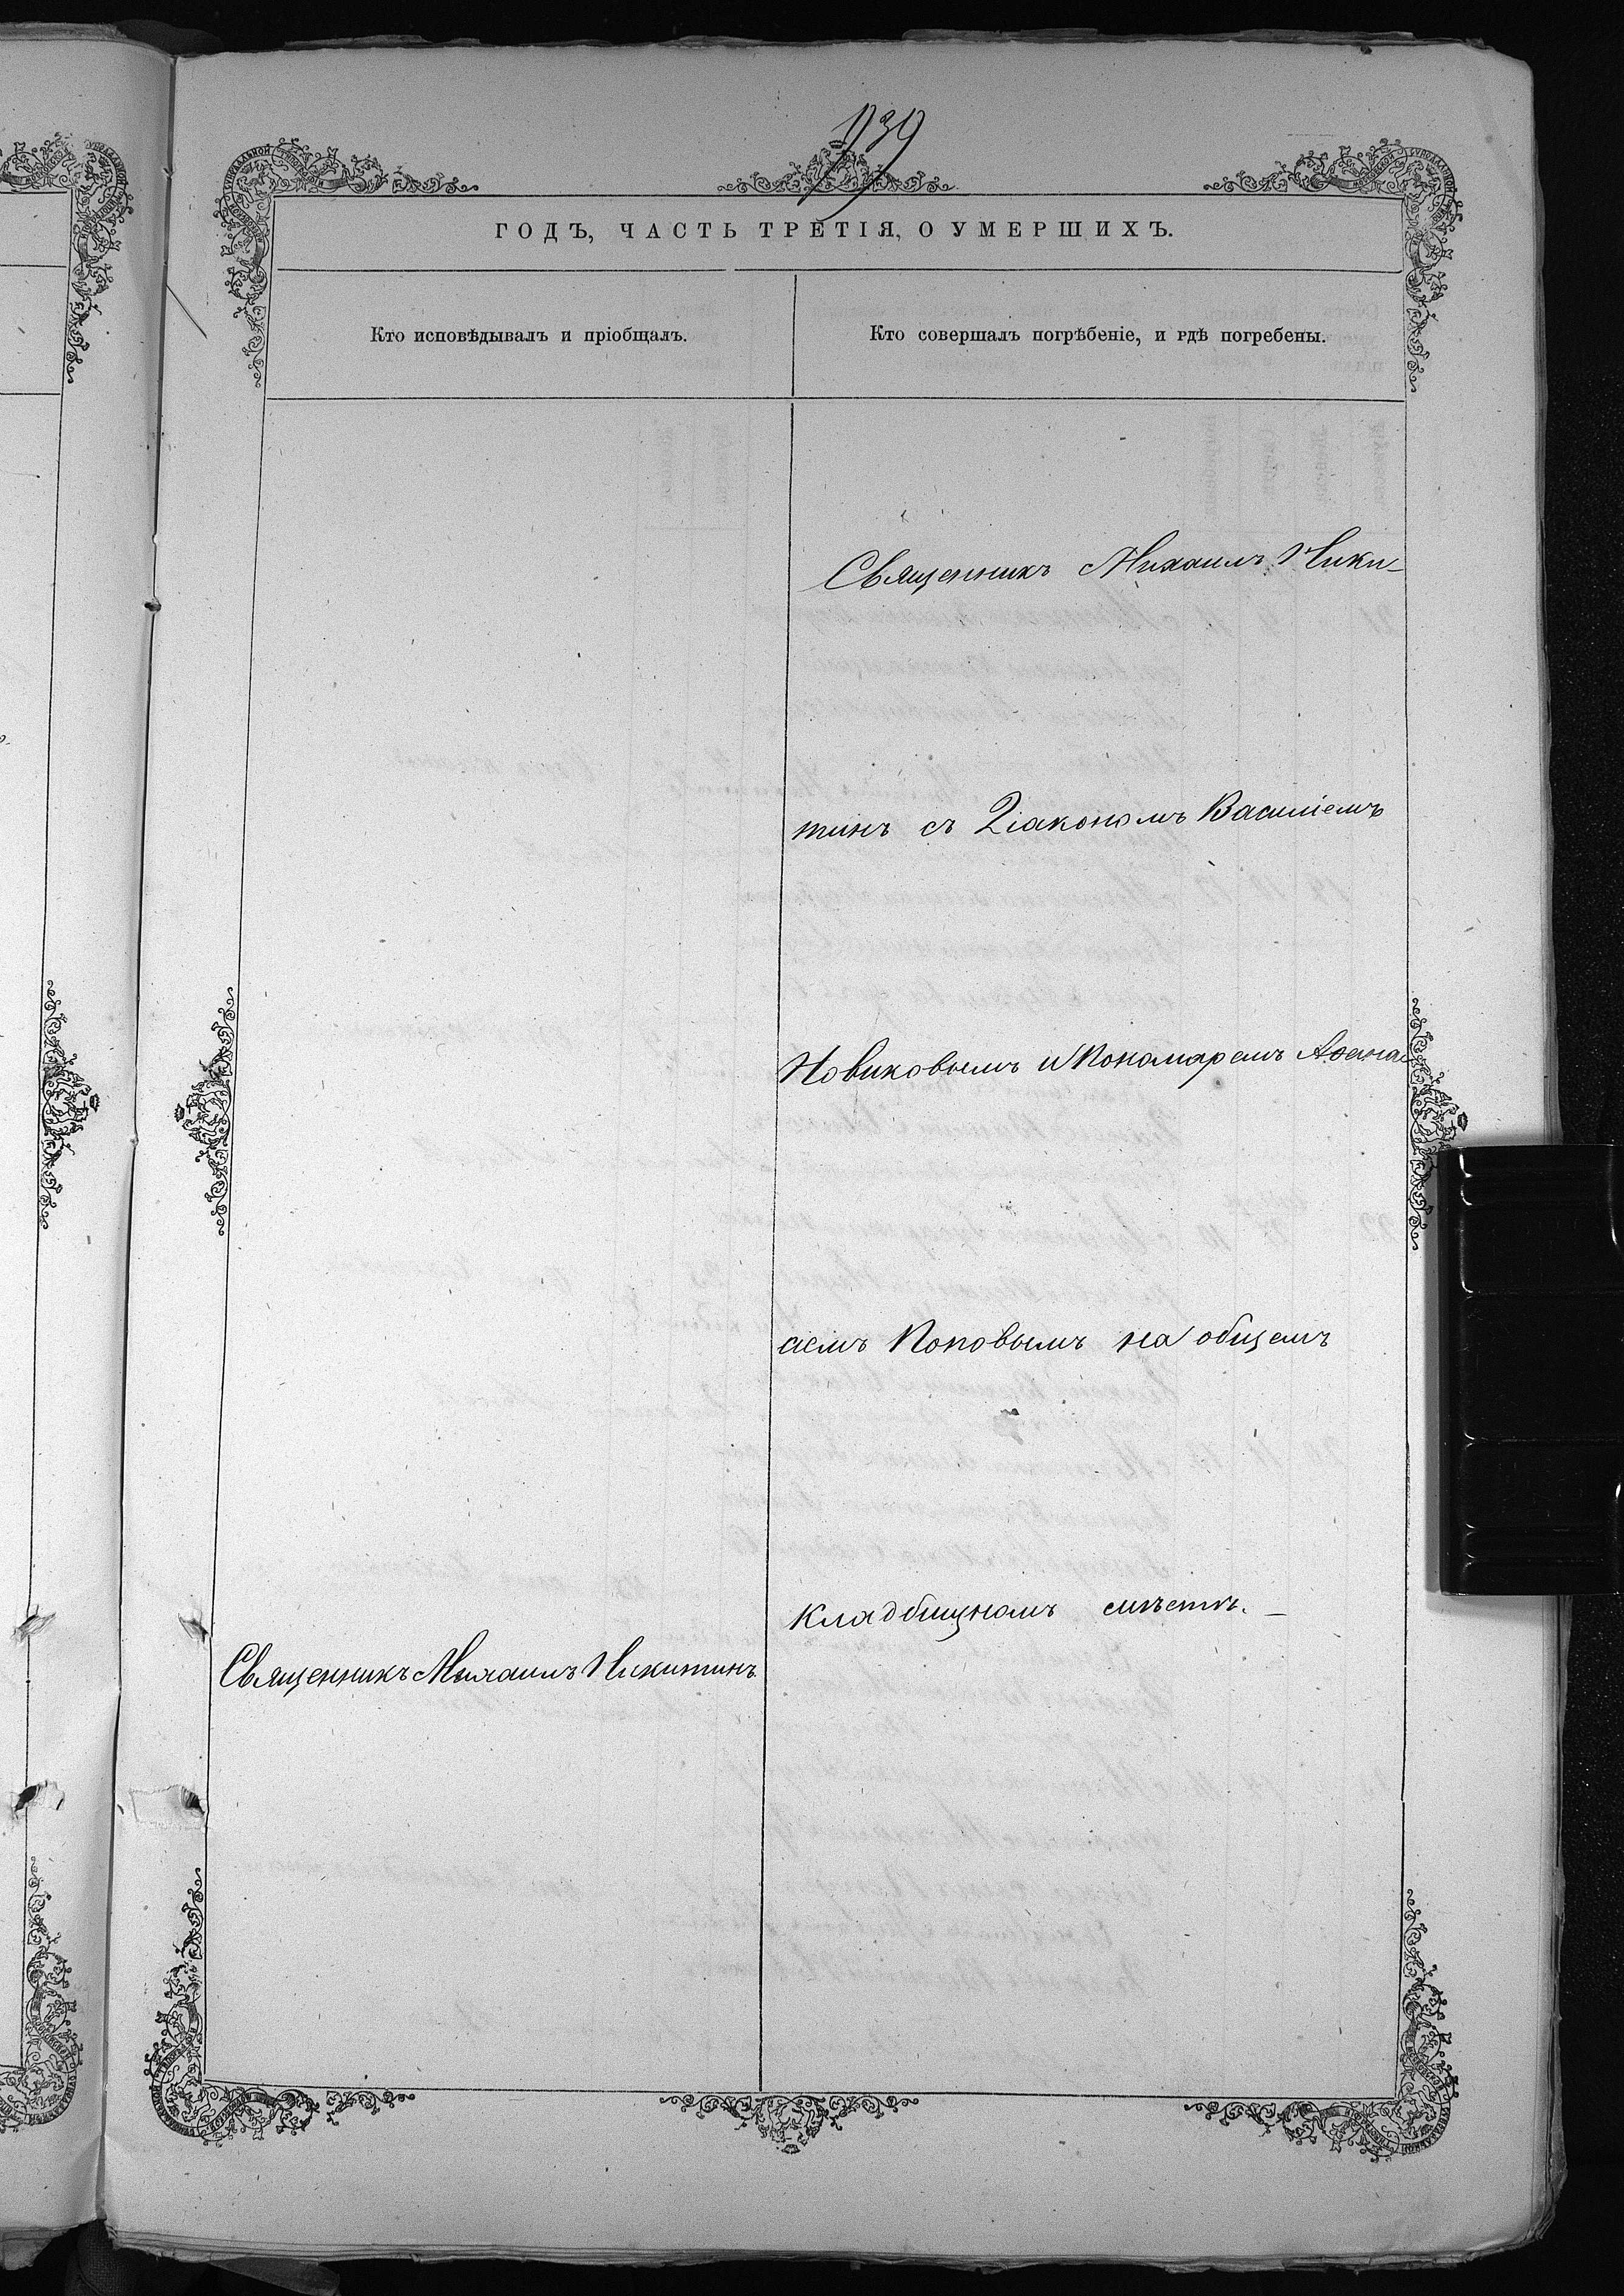 939
ГОДЪ, ЧАСТЬ ТРЕТІЯ, О УМЕРШИХЪ.
Кто исповѣдывалъ и пріобщалъ.
Кто совершалъ погрѣбеніе, и гдѣ погребены.
Священникъ Михаилъ Ники-
тинъ съ Діакономъ Василіемъ
Новиковымъ и Пономаремъ Афана
сіемъ Поповымъ на общемъ
кладбищномъ мѣстѣ. —
Священникъ Михаилъ Никитинъ